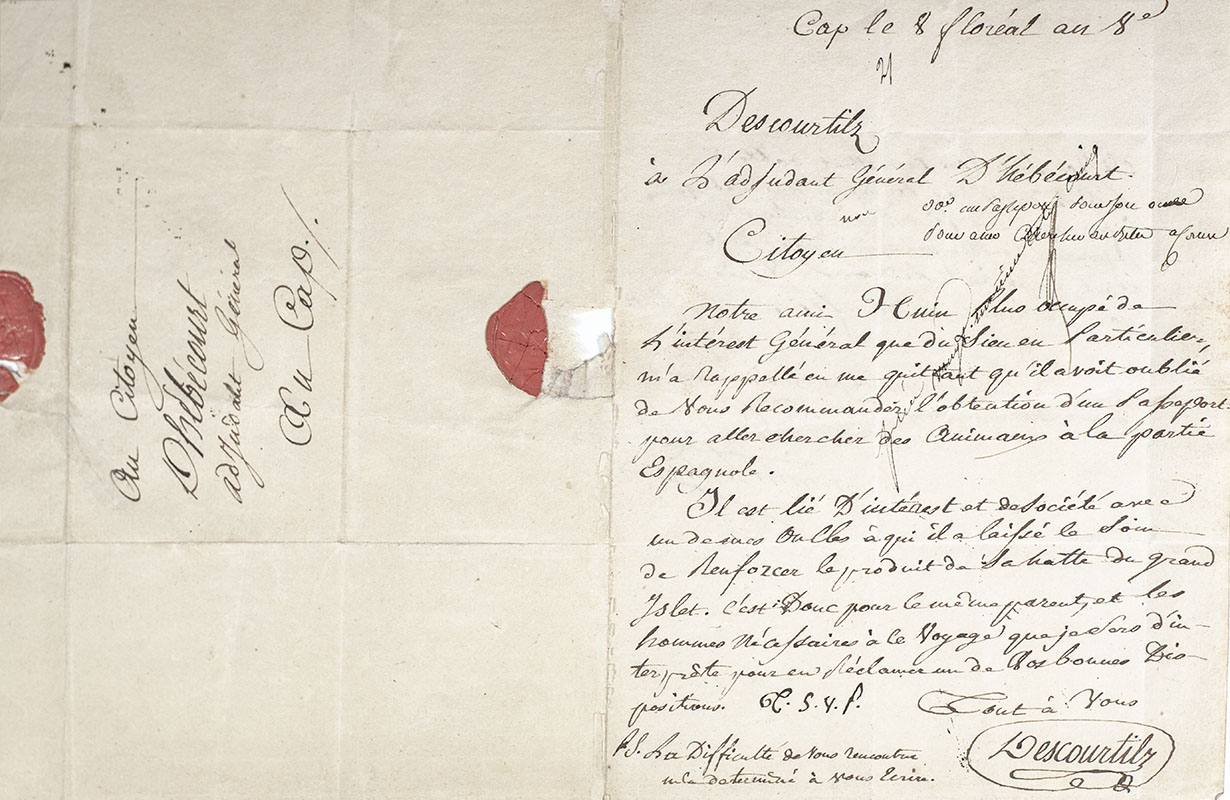 Au Citoyen
D'hébécourt
adjudant Général
Au Cap.
Cap le 8 floréal an 8e
Descourtilz
à L'adjudant Général D'hébécourt.
Citoyen
Notre ami Huin Plus occupé de
L'intérest Général que du Sien en Particulier,
m'a Rappellé en me quittant qu'il avoit oublié
de Vous Recommander l'obtention d'un Passeport
pour aller chercher des Animaux à la partie
Espagnole.
Il est lié D'intérest et de Société avec
un de mes Oncles à qui il a laissé le Soin
de Renforcer le produit de Sa hatte du grand
Islet. C'est Donc pour le même parent, et les
hommes Nécessaires à le Voyage que je Sers d'in-
terprête pour en Réclamer un de Vos bonnes Dis
positions. Tout à Vous
Descourtilz
P.S. La Difficulté de Vous rencontrer
m'a determiné à Vous Ecrire.